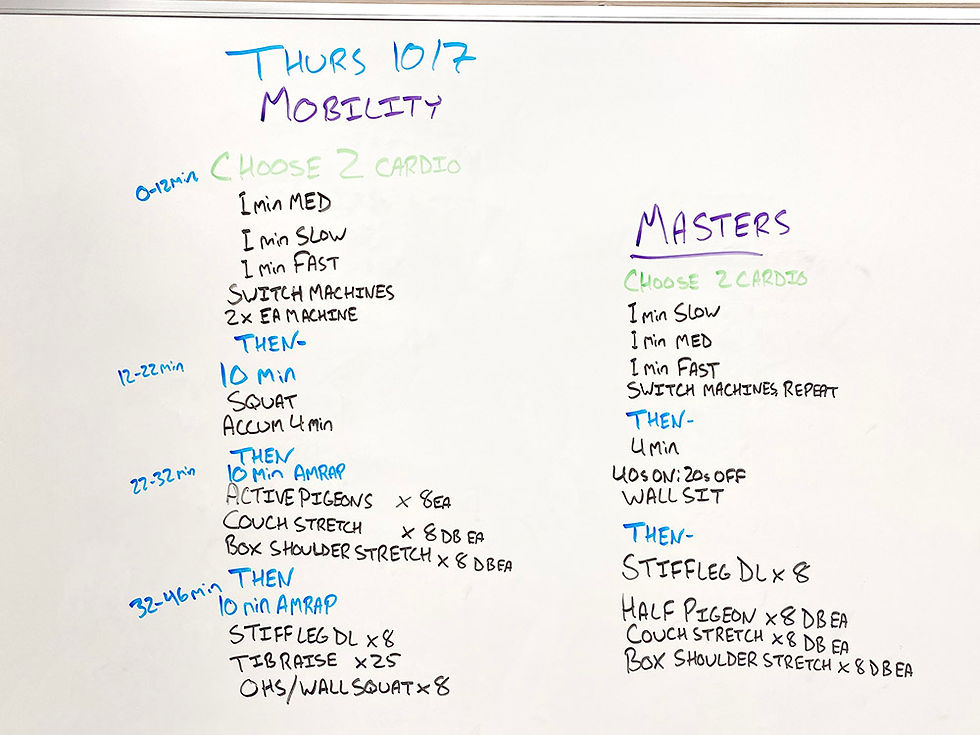 THURS 10/7
MOBILITY
0-12min CHOOSE 2 CARDIO
1 min MED
1 min SLOW
1 min FAST
SWITCH MACHINES
2x EA MACHINE
THEN-
12-22min 10 min
SQUAT
ACCUM 4 min
THEN
22-32min 10 Min AMRAP
ACTIVE PIGEONS x 8 EA
COUCH STRETCH x 8 DB EA
BOX SHOULDER STRETCH x 8 DB EA
32-46min THEN
10 min AMRAP
STIFF LEG DL x 8
TIB RAISE x 25
OHS/WALL SQUAT x 8
MASTERS
CHOOSE 2 CARDIO
1 min SLOW
1 min MED
1 min FAST
SWITCH MACHINES, REPEAT
THEN-
4 min
40s ON: 20s OFF
WALL SIT
THEN-
STIFFLEG DL x 8
HALF PIGEON x 8 DB EA
COUCH STRETCH x 8 DB EA
BOX SHOULDER STRETCH x 8 DB EA